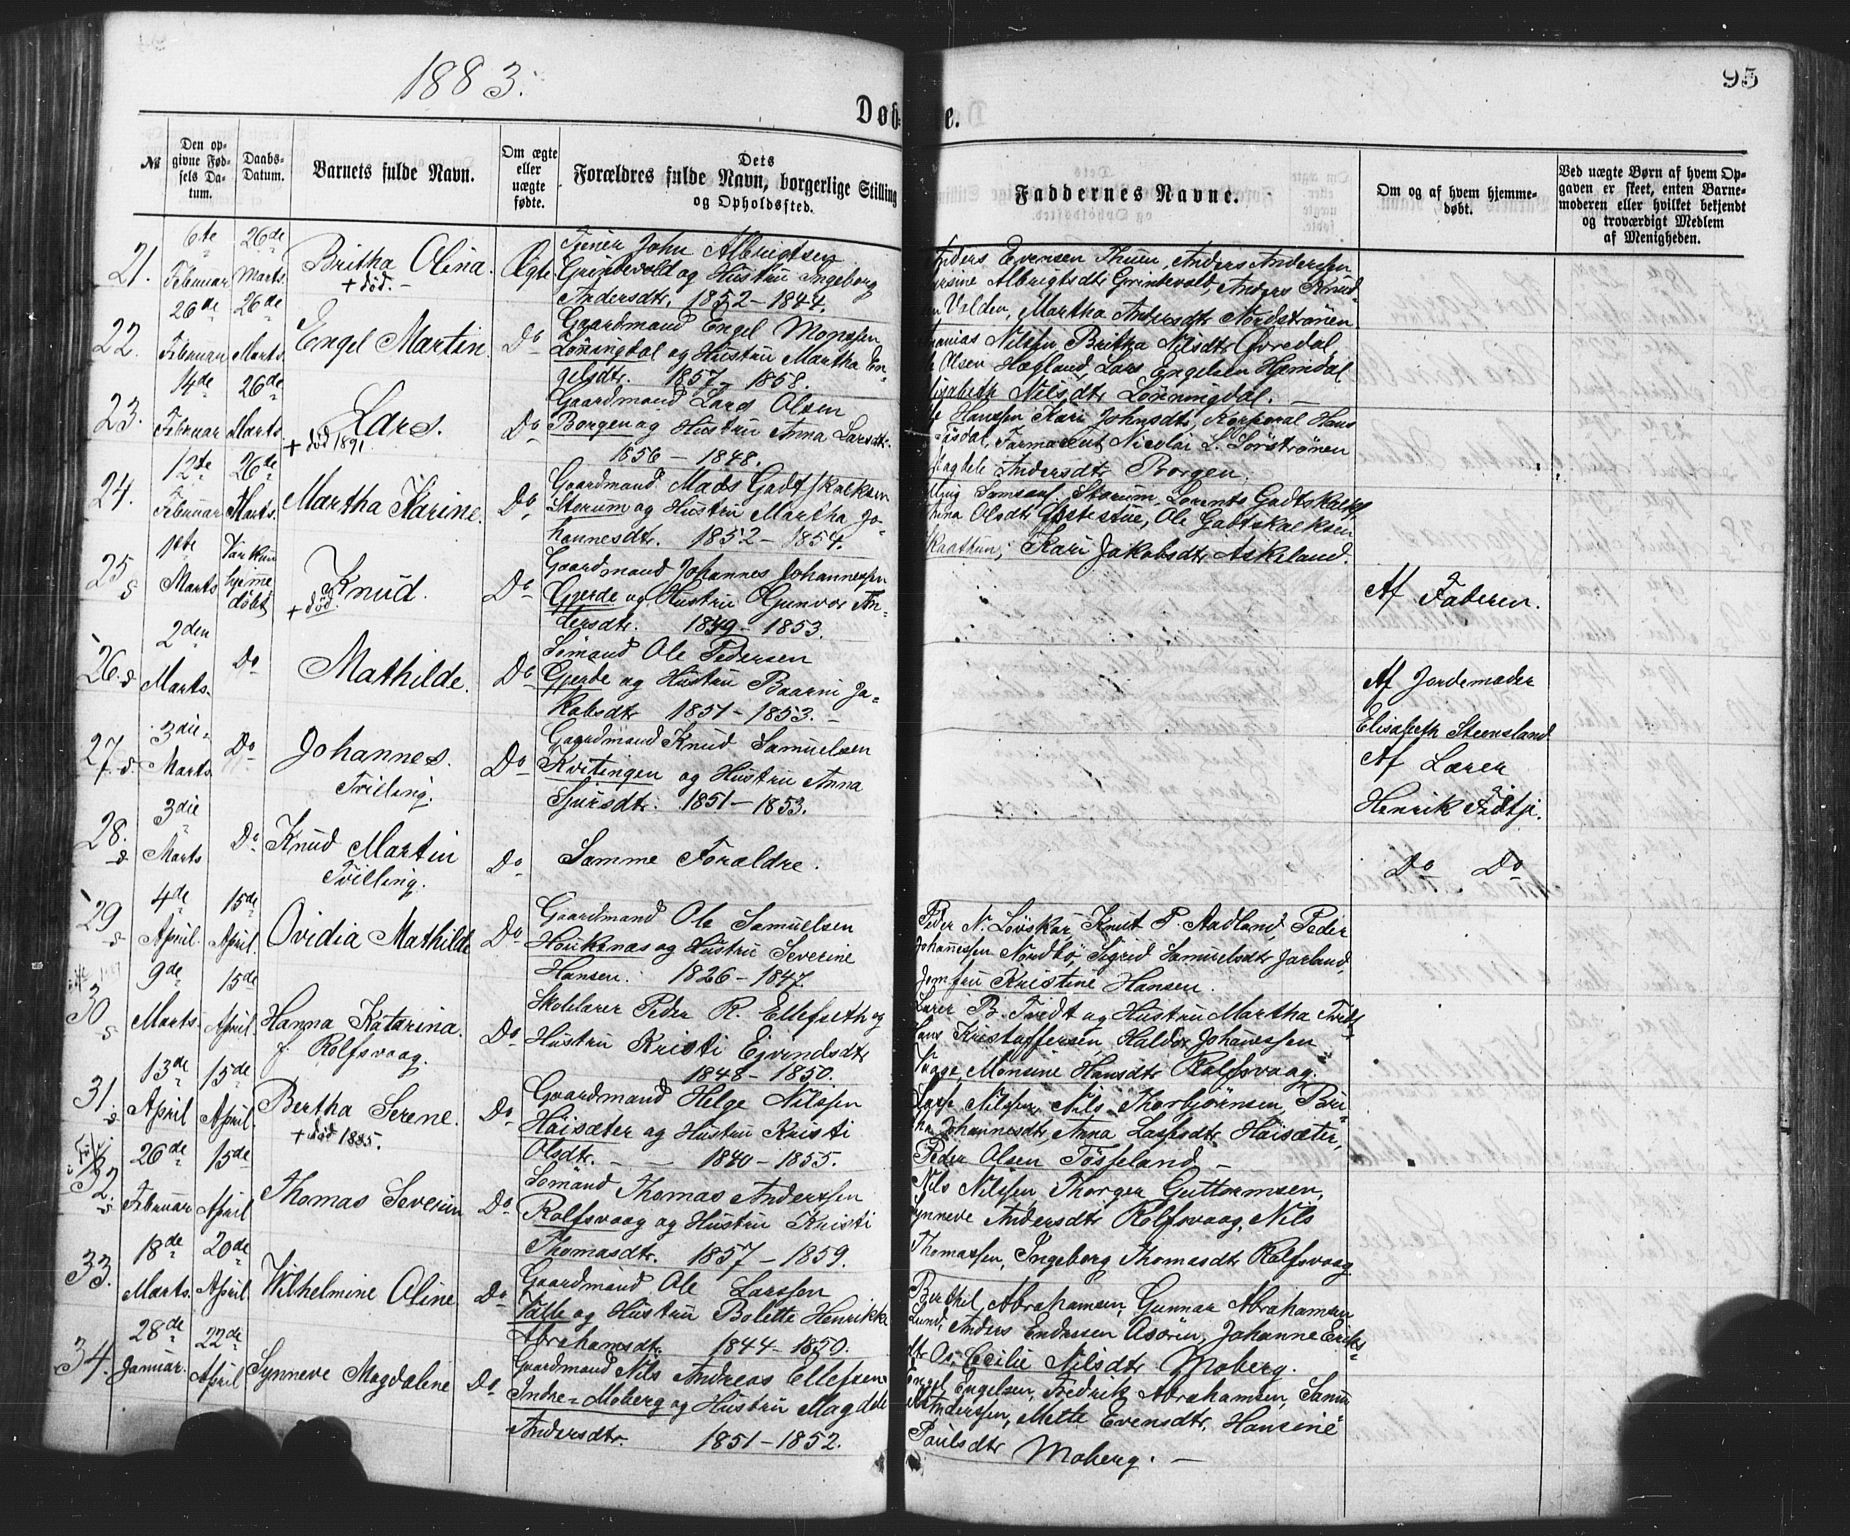 1883.
95
Døb-
e.
№
Den op-
givne Fød-
sels Da-
tum.
Daabs-
Datum.
Barnets fulde Navn.
Om ægte
eller
uægte
fødte.
Dets
Forældres fulde Navn, borgerlige Stilling
og Opholdssted.
Faddernes Navne.
Om og af hvem hjemme-
døbt.
Ved uægte Børn af hvem Op-
gaven er skeet, enten Barne-
moderen eller hvilket bekjendt
og troværdigt Medlem
af Menigheden.
21. 6te Februar 26de Marts. Britha Olina. + død. Ægte
Tjener John Albrigtsen
Grindevold og Hustru Ingeborg
Andersdtr, 1852 - 1844.
Anders Eversen Thuen, Anders Andersen
Albrigtsdtr Grindevold, Anders Knud-
Valden, Martha Andersdtr Nordstrønen
22. 26de Februar 26de Marts. Engel Martin. Do
Gaardmand Engel Monssen
Lønningdal og Hustru Martha En-
gelsdtr. 1857 - 1858.
Nilsen, Britha Nilsdtr Øvredal
Olsen Hægland, Lars Engelsen Hamdal
Nilsdtr Lønningdal.
23. 4de Februar 26de Marts. Lars. + død 1891. Do
Gaardmand Lars Olsen
Borgen og Hustru Anna Larsdtr.
1856 - 1848.
Hanssen Kari Johnsdtr, Korporal Hans
Nicolai L. Sørstrønen
Magdele Andersdtr Borgen.
24. 12te Februar 26de Marts. Martha Karine. Do
Gaardmand Mads Gadtskalksen
Storum og Hustru Martha Jo-
hannesdtr. 1852 - 1854.
Samsons. Storum, Lorents Gadtskalks
Anna Olsdtr Ole Gadtskalksen
Kari Jakobsdtr Askeland.
25 1ste Marts Var kun hjemme døbt Knud. + død. Do
Gaardmand Johannes Johannessen
Gjerde og Hustru Gunvor An-
dersdtr. 1849 - 1853.
Af Faderen.
26. 2den Marts. Do Mathilde. Do
Sømand Ole Pedersen
Gjerde og Hustru Baarni Ja-
kobsdtr 1851 - 1853.
Af Jordemoder
Elisabeth Steensland
27. 3die Marts Do Johannes. Tvilling. Do
Gaardmand Knud Samuelsen
Kvitingen og Hustru Anna
Sjursdtr. 1851 - 1853.
Af Lærer
Henrik Tvedt
28. 3die Marts Do Knud Martin Tvilling. Do
Samme Forældre.
Do Do
29 4de April. 15de April. Ovidia Mathilde Do
Gaardmand Ole Samuelsen
Haukenæs og Hustru Severine
Hansen. 1826 - 1847.
Peder N. Løvskar, Knut P. Aadland, Peder
Johannessen Nordbø, Sigrid Samuelsdtr Jarland,
Jomfru Kristine Hansen.
30 9de Marts. 15de April Hanna Katarina. f. Rolfsvaag. Do
Skolelærer Peder R. Ellefseth og
Hustru Kristi Ejvindsdtr
1848 - 1850.
Lærer B. Tvedt og Hustru Martha Tvedt
Hans Kristoffersen, Haldor Johannessen
Vaage, Monsine Hansdtr Rolfsvaag.
31. 13de April 15de April. Bertha Serene. + død 1885. Do
Gaardmand Helge Nilssen
Høisæter og Hustru Kristi
Olsdtr. 1840 - 1855.
Lasse Nilssen, Nils Thorbjørnsen, Bri-
tha Johannesdtr, Anna Lassesdtr Høisæter,
Peder Olsen Tøsseland
32. 26de Februar 15de April Thomas Severin Do
Sømand Thomas Anderssen
Rolfsvaag og Hustru Kristi
Thomasdtr. 1857 - 1859.
Nils Nilssen, Thorger Guttormsen,
Synneve Andersdtr Rolfsvaag, Nils
Thomassen, Ingeborg Thomasdtr Rolfsvaag
33. 18de Marts. 20de April Wilhelmine Oline Do
Gaardmand Ole Larssen
Valle og Hustru Bolette Henrikke
Abrahamsdtr. 1844 - 1850.
Berthel Abrahamsen, Gunnar Abrahamsen
Lund, Anders Endresen Johanne Eriks-
dtr Cecilie Nilsdtr Moberg.
34. 28de Januar. 22de April Synneve Magdaline Do
Gaardmand Nils Andreas Ellefsen
Indre-Moberg og Hustru Magdele
Andersdtr. 1851 - 1852.
Engel Engelsen, Fredrik Abrahamsen,
Anderssen, Mette Evensdtr, Hansine
Paulsdtr Moberg.